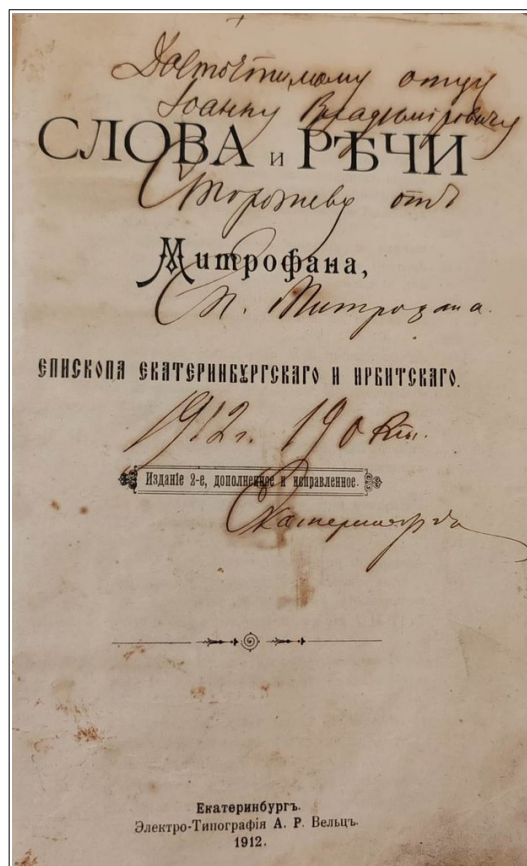 Досточтимому отцу
Іоанну Владиміровичу
СЛОВА и РѢЧИ
Сторожеву отъ
Митрофана,
Еп. Митрофана.
ЕПИСКОПА ЕКАТЕРИНБУРГСКАГО И ИРБИТСКАГО.
1912 г. 19 окт.
Изданіе 2-е, дополненное и исправленное.
Екатеринбургъ
Екатеринбургъ.
Электро-Типографія А. Р. Вельцъ.
1912.